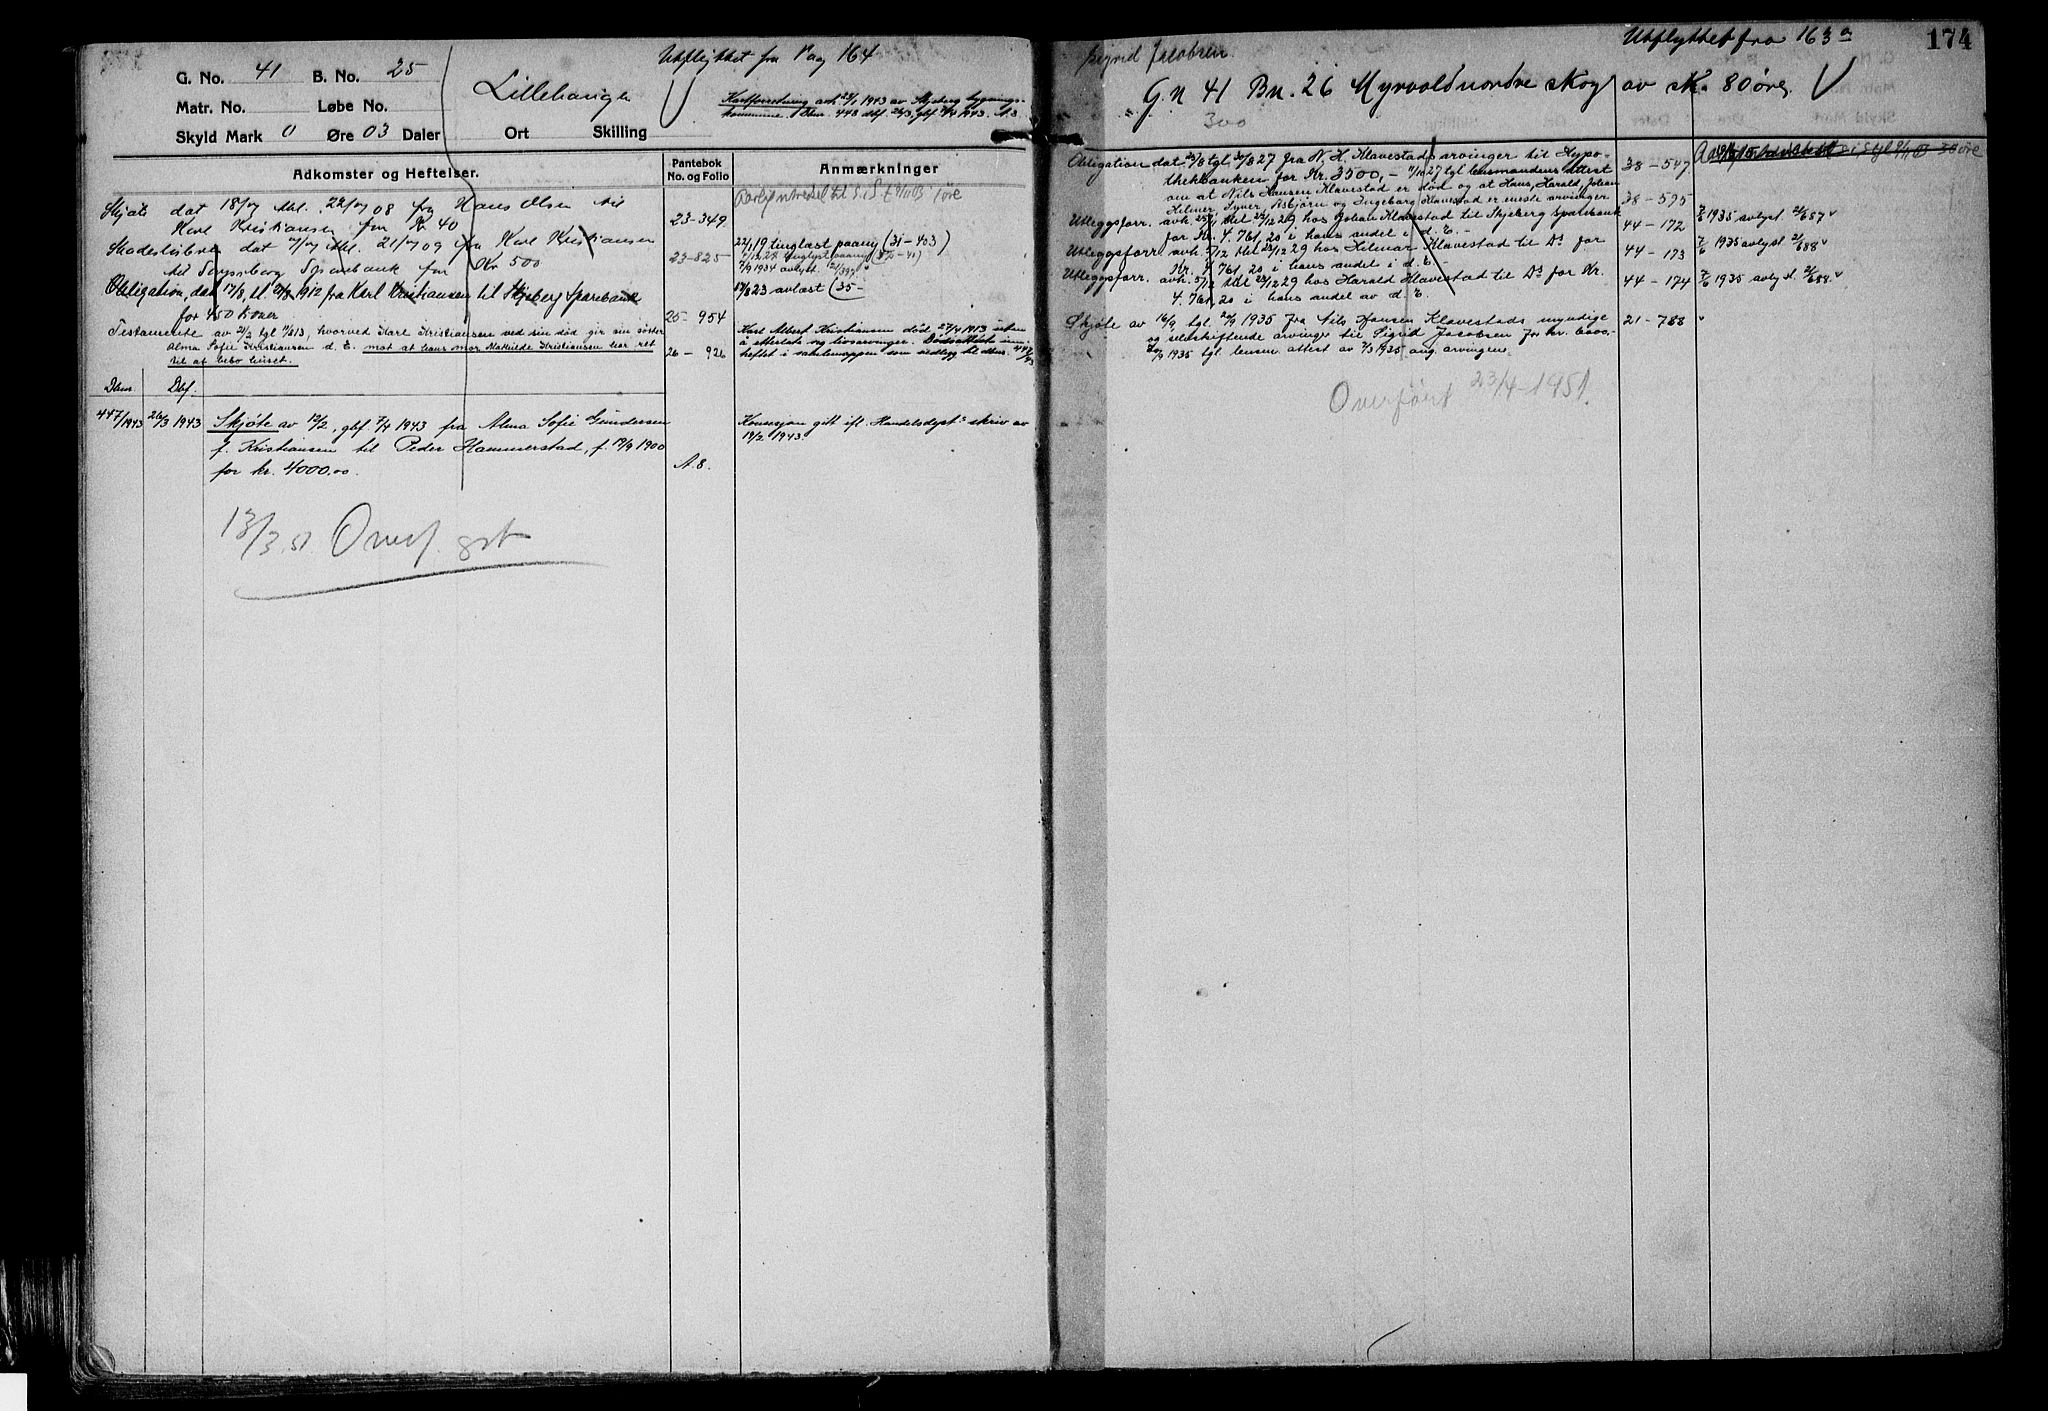 G. No. 41 B. No. 25
Matr. No. Løbe No.
Skyld Mark 0 Øre 03 Daler Ort Skilling
Utflyttet fra Pag 164
Kartforretning avh. 1943 av Skjeberg bygnings-
kommune
Adkomster og Heftelser.
Pantebok No. og Folio
Anmærkninger
Skjøte dat 18/7 thl. 22/7 08 fra Hans Olsen til
Karl Kristiansen for Kr 40
23-349
Skadesløsbrev dat 7/7 thl. 21/7 09 fra Karl Kristiansen
til Sarpsborg Sparebank for Kr 500
23-825
22/1 19 tinglæst paany (31-403)
7/9 1934 avlyst.
Obligation, dat 17/8, tl. 21/8 1912 fra Karl Kristiansen til Skjeberg Sparebank
for 450 Kroner
25-954
17/8 23 avlæst (35-
Testamente av 21/2 tgl 11/6 13, hvorved Karl Kristiansen ved sin død gir sin søster
Alma Sofie Kristiansen d. E. mot at hans mor Mathilde Kristiansen har ret
til at bebo huset.
26-926
Karl Albert Kristiansen død 27/4 1913 uten
å etterlate sig livsarvinger. Dødsattest inn-
heftet i
Dbnr. Dbf.
447/1943 26/3 1943 Skjøte av 12/2, gbf 7/4 1943 fra Alma Sofie Gundersen
f. Kristiansen til Peder Hammerstad, f. 19/9 1900
for kr. 4000,00.
A.8.
Konsesjon gitt ifl. Handelsdept.s skriv av
19/2 1943.
13/3.51. Overf. gst
Utflyttet fra 163a
174
Sigrid Jacobsen
G.N 41 Bn. 26 Myrvold nordre skog av sk. 80 øre.
300
Obligation dat 23/8 tgl. 30/8 27 fra N. H. Klavestads arvinger til Hypo-
thekbanken for Kr. 3500,- 11/10 27 tgl lensmandens attest
om at Nils Hansen Klavestad er død og at Hans, Harald, Johan
Hilmar, Syver, Asbjørn og Ingeborg Klavestad er eneste arvinger
38-547
38-595
Utleggsforr. avh. thl 23/12 29 hos Johan Klavestad til Skjeberg Sparebank
for Kr. 4.761,20 i hans andel i d. E.-
44-172
7/6 1935 avlyst 21/687
Utleggsforr. avh. 5/12 thl 23/12 29 hos Hilmar Klavestad til Do for
Kr. 4.761,20 i hans andel i d. E.-
44-173
7/6 1935 avlyst 21/688
Utleggsforr. avh. 5/12 thl 23/12 29 hos Harald Klavestad til Do for Kr.
4.761,20 i hans andel av d. E.
44-174
7/6 1935 avlyst 21/688.
Skjøte av 16/9 tgl. 20/9 1935 fra Nils Hansen Klavestads myndige
og selvskiftende arvinger til Sigrid Jacobsen for kr. 6000.-
20/9 1935 tgl. lensm attest av 7/3 1935 ang. arvingene.
21-788
Overført 23/4-1951.